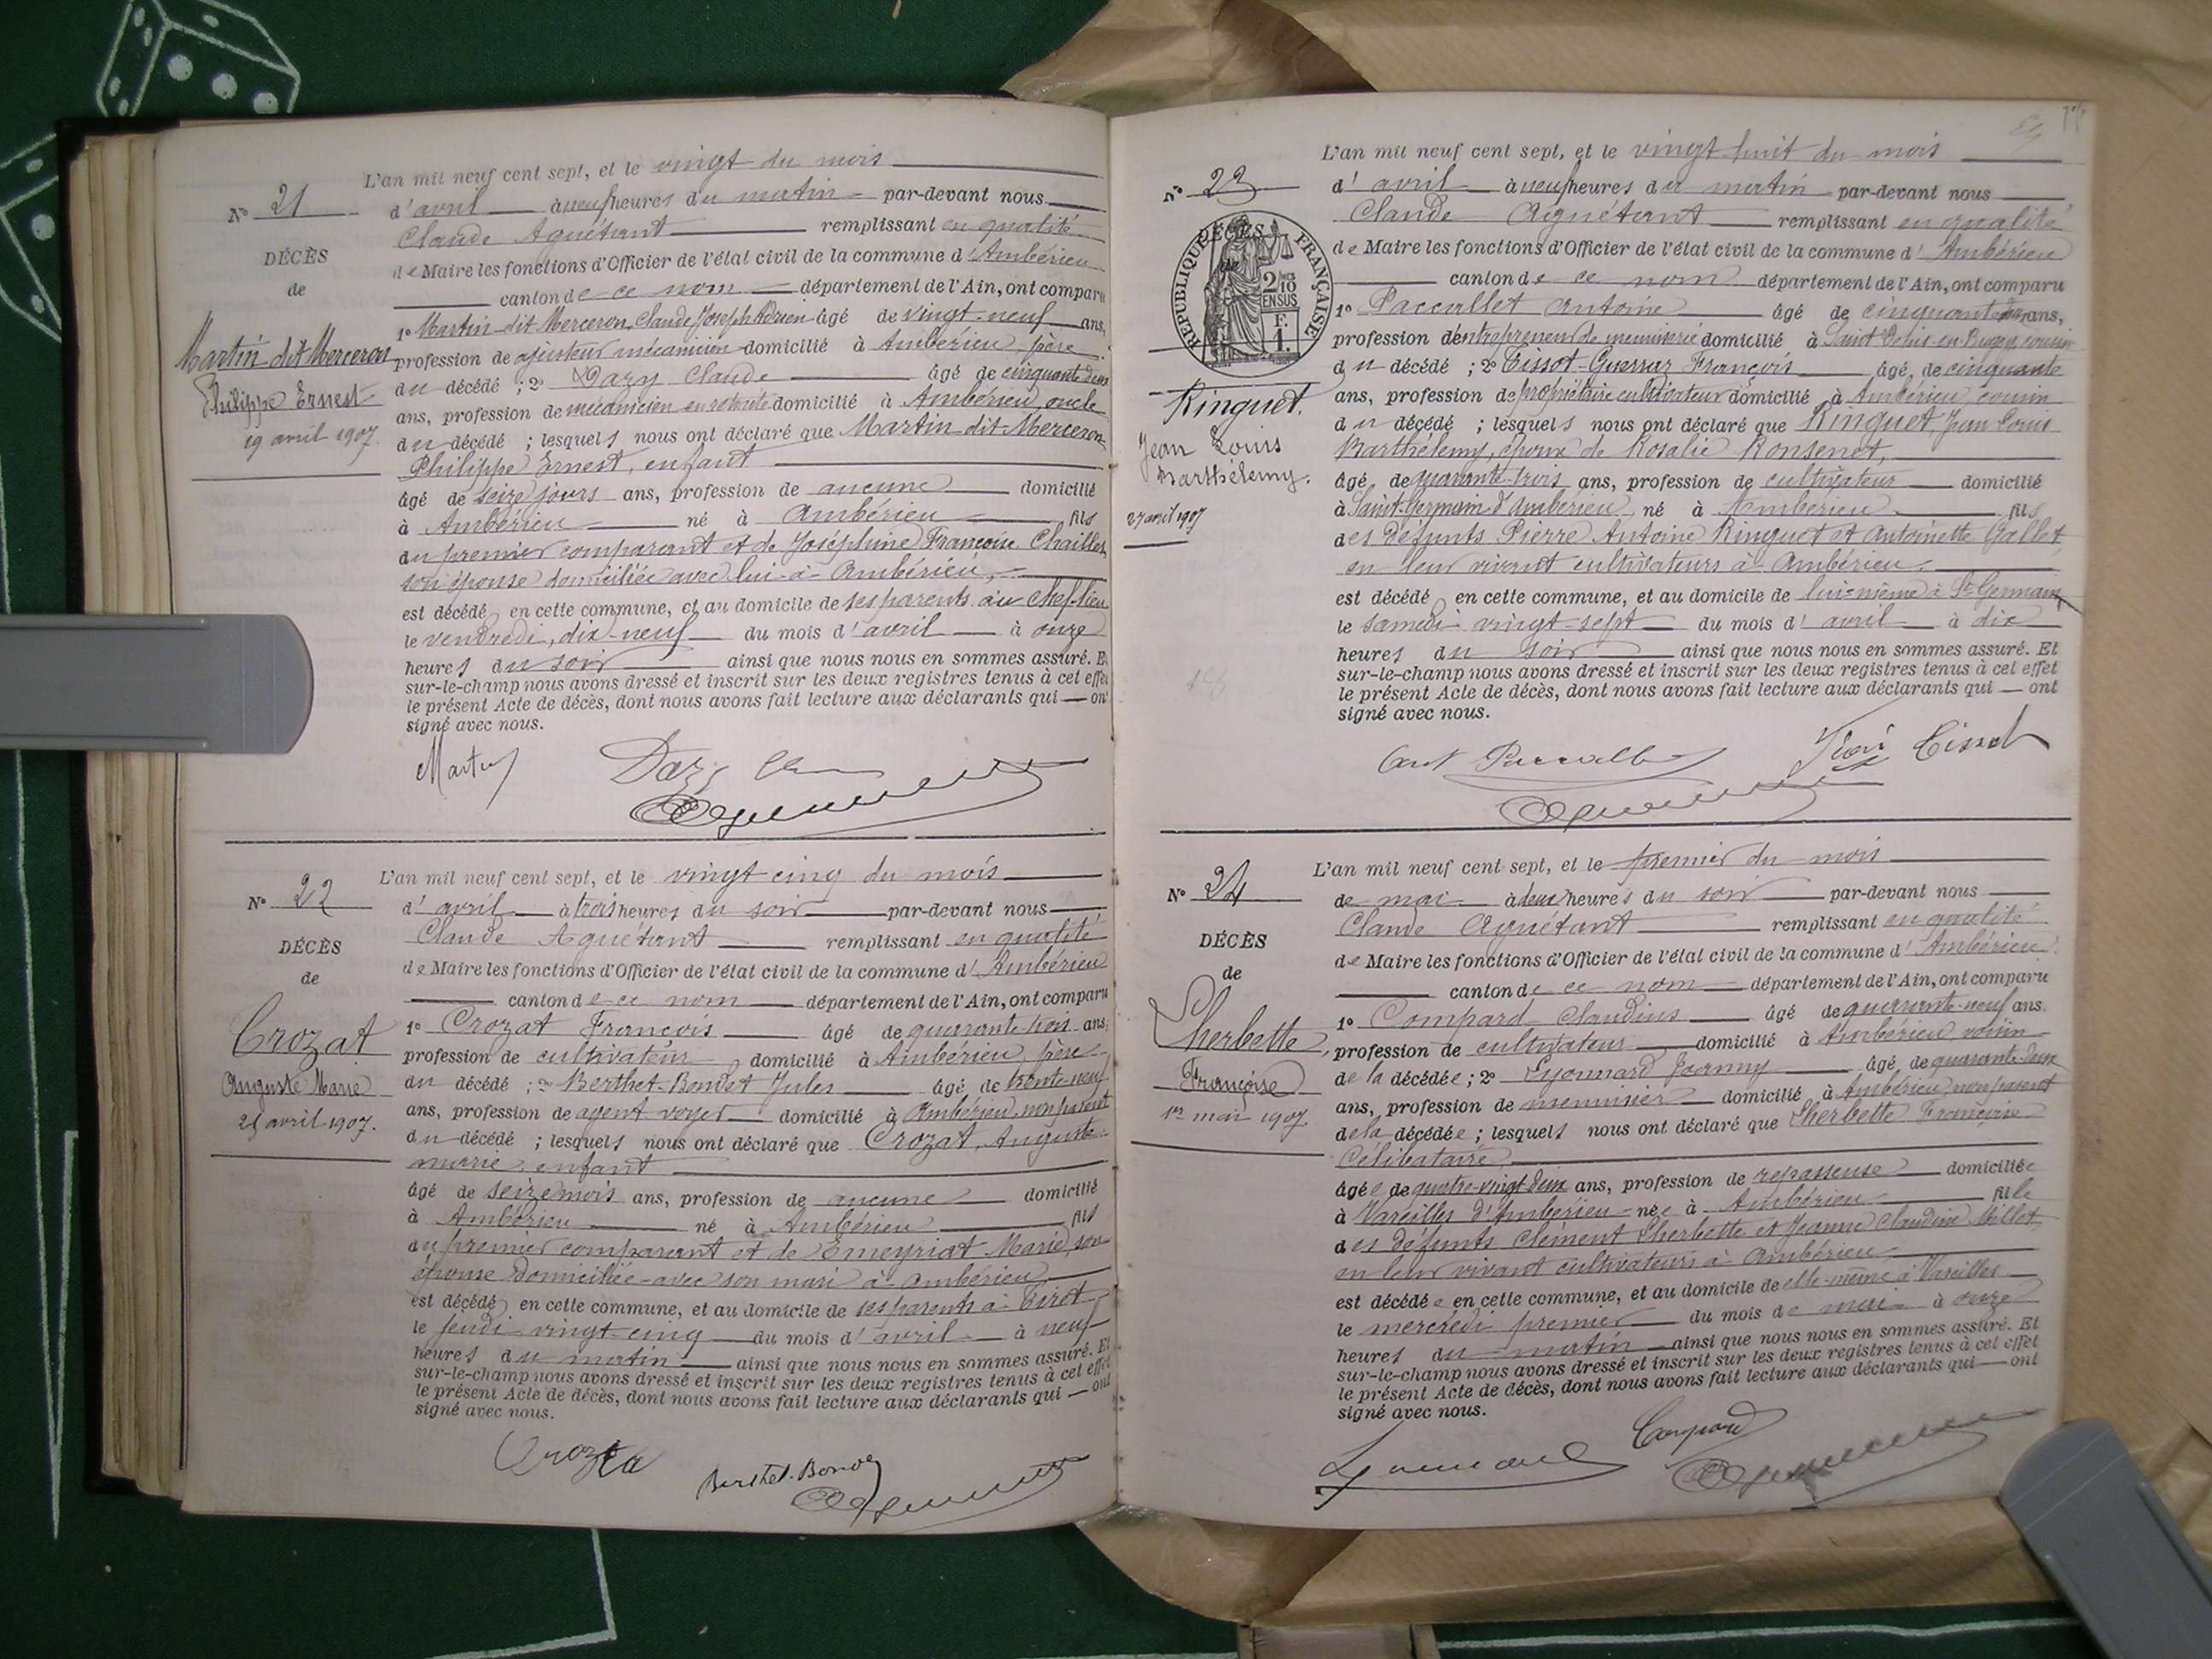 L'an mil neuf cent sept, et le vingt du mois
N° 21
d'avril à neuf heures du matin par-devant nous
Claude Aguétant remplissant en qualité
DÉCÈS
de Maire les fonctions d'Officier de l'état civil de la commune d'Ambérieu
de
canton de ce nom département de l'Ain, ont comparu
1° Martin dit Merceron Claude Joseph Adrien âgé de vingt-neuf ans,
Martin dit Merceron
profession de ajusteur mécanicien domicilié à Ambérieu, père
Philippe Ernest
du décédé ; 2° Dazy Claude âgé de cinquante deux
19 avril 1907.
ans, profession de mécanicien en retraite domicilié à Ambérieu, oncle
du décédé ; lesquels nous ont déclaré que Martin dit Merceron
Philippe Ernest, enfant
âgé de seize jours ans, profession de aucune domicilié
à Ambérieu né à Ambérieu fils
du premier comparant et de Joséphine Françoise Chailles
son épouse domiciliée avec lui à Ambérieu,
est décédé en cette commune, et au domicile de ses parents au chef-lieu
le vendredi, dix-neuf du mois d'avril à onze
heures du soir ainsi que nous nous en sommes assuré. Et
sur-le-champ nous avons dressé et inscrit sur les deux registres tenus à cet effet
le présent Acte de décès, dont nous avons fait lecture aux déclarants qui — ont
signé avec nous.
Martin Dazy
L'an mil neuf cent sept, et le vingt cinq du mois
N° 22
d'avril à trois heures du soir par-devant nous
Claude Aguétant remplissant en qualité
DÉCÈS
de Maire les fonctions d'Officier de l'état civil de la commune d'Ambérieu
de
canton de ce nom département de l'Ain, ont comparu
1° Crozat François âgé de quarante trois ans,
Crozat
profession de cultivateur domicilié à Ambérieu, père
Auguste Marie
du décédé ; 2° Berthet-Bondet Jules âgé de trente-neuf
25 avril 1907.
ans, profession de agent voyer domicilié à Ambérieu, non parent
du décédé ; lesquels nous ont déclaré que Crozat, Auguste
marie, enfant
âgé de seize mois ans, profession de aucune domicilié
à Ambérieu né à Ambérieu fils
du premier comparant et de Emeyriat Marie, son
épouse domiciliée avec son mari à Ambérieu
est décédé en cette commune, et au domicile de ses parents à Tiret
le jeudi vingt-cinq du mois d'avril à neuf
heures du matin ainsi que nous nous en sommes assuré. Et
sur-le-champ nous avons dressé et inscrit sur les deux registres tenus à cet effet
le présent Acte de décès, dont nous avons fait lecture aux déclarants qui — ont
signé avec nous.
Crozat
Berthet-Bondet
L'an mil neuf cent sept, et le vingt huit du mois
N° 23
d'avril à neuf heures du matin par-devant nous
Claude Aguétant remplissant en qualité
RÉPUBLIQUE FRANÇAISE
DÉCÈS
de
2/10 EN SUS
F. 1.
de Maire les fonctions d'Officier de l'état civil de la commune d'Ambérieu
canton de ce nom département de l'Ain, ont comparu
1° Paccallet Antoine âgé de cinquante ans,
profession d'entrepreneur de menuiserie domicilié à Saint Denis-en-Bugey, cousin
du décédé ; 2° Tissot-Guerraz François âgé de cinquante
Ringuet.
ans, profession de propriétaire cultivateur domicilié à Ambérieu, cousin
du décédé ; lesquels nous ont déclaré que Ringuet, Jean Louis
Jean Louis
Barthélemy, époux de Rosalie Ronsenet,
Barthélemy.
âgé de quarante-trois ans, profession de cultivateur domicilié
27 avril 1907
à Saint-Germain d'Ambérieu, né à Ambérieu fils
des défunts Pierre Antoine Ringuet et Antoinette Gallet,
en leur vivant cultivateurs à Ambérieu
est décédé en cette commune, et au domicile de lui-même à St Germain,
le samedi vingt-sept du mois d'avril à dix
heures du soir ainsi que nous nous en sommes assuré. Et
sur-le-champ nous avons dressé et inscrit sur les deux registres tenus à cet effet
le présent Acte de décès, dont nous avons fait lecture aux déclarants qui — ont
signé avec nous.
Ant Paccallet Tissot
L'an mil neuf cent sept, et le premier du mois
N° 24
de mai à deux heures du soir par-devant nous
Claude Aguétant remplissant en qualité
DÉCÈS
de Maire les fonctions d'Officier de l'état civil de la commune d'Ambérieu
de
canton de ce nom département de l'Ain, ont comparu
1° Compard Claudius âgé de quarante-neuf ans.
Lherbette,
profession de cultivateur domicilié à Ambérieu, voisin
Françoise
de la décédée ; 2° Lyonnard Joanny âgé de quarante-deux
1er mai 1907.
ans, profession de menuisier domicilié à Ambérieu, non parent
de la décédée ; lesquels nous ont déclaré que Lherbette Françoise
Célibataire
âgée de quatre-vingt deux ans, profession de repasseuse domiciliée
à Vareilles d'Ambérieu née à Ambérieu fille
des défunts Clément Lherbette et Jeanne Claudine Millet,
en leur vivant cultivateurs à Ambérieu
est décédée en cette commune, et au domicile de elle-même à Vareilles
le mercredi premier du mois de mai à onze
heures du matin ainsi que nous nous en sommes assuré. Et
sur-le-champ nous avons dressé et inscrit sur les deux registres tenus à cet effet
le présent Acte de décès, dont nous avons fait lecture aux déclarants qui — ont
signé avec nous.
Compard